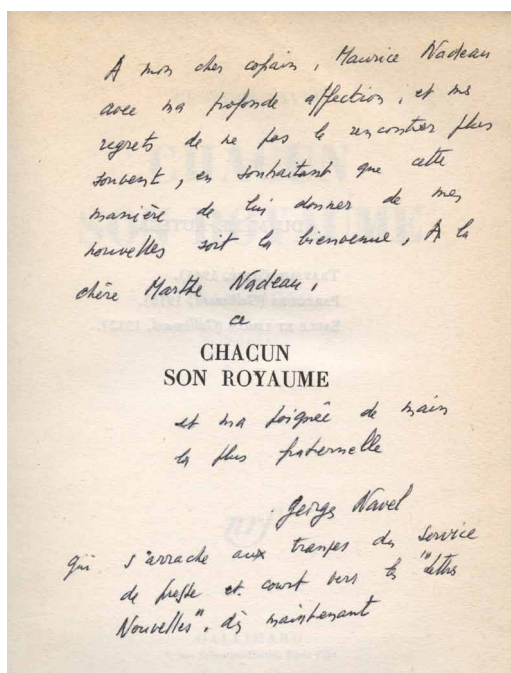 A mon cher copain, Maurice Nadeau
avec ma profonde affection, et mes
regrets de ne pas le rencontrer plus
souvent, en souhaitant que cette
manière de lui donner de mes
nouvelles soit la bienvenue, A la
chère Marthe Nadeau,
ce
CHACUN
SON ROYAUME
et ma poignée de main
la plus fraternelle
Georges Navel
qui s'arrache aux transes du service
de presse et court vers les "lettres
Nouvelles", dès maintenant